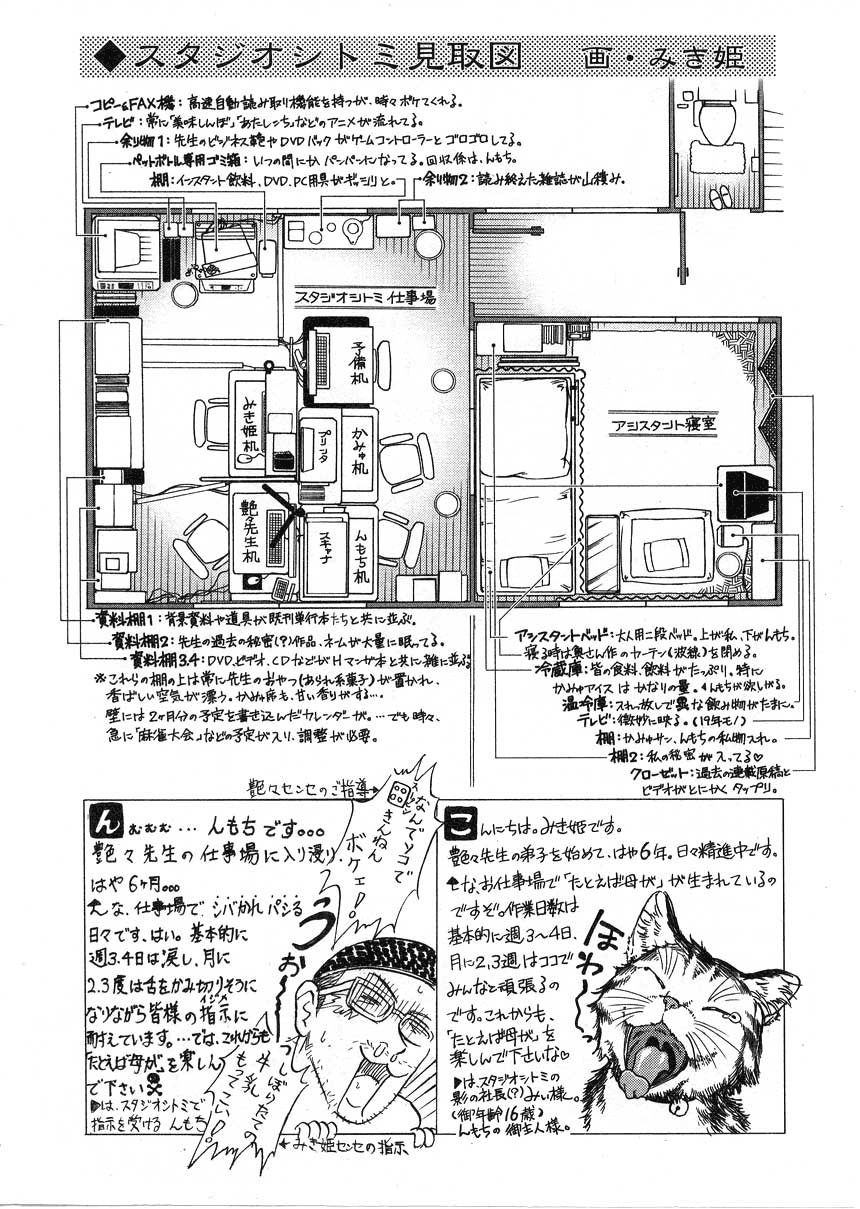 ◆スタジオシトミ見取図 画・みき姫
コピー&FAX機：高速自動読み取り機能を持つが、時々ボケてくれる。
テレビ：常に「美味しんぼ」「あたしンち」などのアニメが流れてる。
余り物1：先生のビジネス鞄やDVDパックがゲームコントローラーとゴロゴロしてる。
ペットボトル専用ゴミ箱：いつの間にかパンパンになってる。回収係は、んもち。
棚：インスタント飲料、DVD、PC用具がギッシリと。
余り物2：読み終えた雑誌が山積み。
スタジオシトミ仕事場
予備机
みき姫机
プリンタ
かみゅ机
艶々先生机
スキャナ
んもち机
アシスタント寝室
資料棚1：背景資料や道具が既刊単行本たちと共に並ぶ。
資料棚2：先生の過去の秘密(?)作品、ネームが大量に眠ってる。
資料棚3.4：DVD、ビデオ、CDなどがHマンガ本と共に雑に並ぶ。
※これらの棚の上は常に先生のおやつ(あられ系菓子)が置かれ、
香ばしい空気が漂う。かみゅ席も、甘い香りがする…。
壁には2ヶ月分の予定を書き込んだカレンダーが。…でも時々、
急に「麻雀大会」などの予定が入り、調整が必要。
アシスタントベッド：大人用二段ベッド。上が私、下がんもち。
寝る時は奥さん作のカーテン(波線)を閉める。
冷蔵庫：皆の食料、飲料がたっぷり。特に
かみゅアイスはかなりの量。んもちが欲しがる。
温冷庫：スイッチ入れっ放しで異な飲み物がたまに。
テレビ：微妙に映る。(19年モノ)
棚：かみゅサン、んもちの私物入れ。
棚2：私の秘密が入ってる♡
クローゼット：過去の連載原稿と
ビデオがとにかくタップリ。
艶々センセのご指導→
なんでソコで
きんねん
ボケェ!
んむむむ…んもちです。。。
艶々先生の仕事場に入り浸り、
はや6ヶ月。。。
そんな、仕事場でシバかれパシる
日々です、はい。基本的に
週3.4日は涙し、月に
2.3度は舌をかみ切りそうに
なりながら皆様の指示に
イジメ
耐えています。…では、これからも
「たとえば母が」を楽しんで
下さい☠
▶は、スタジオシトミで
指示を受けるんもち
うおーっ
しぼりたての
牛乳
もってこい!
←みき姫センセの指示
こんにちは。みき姫です。
艶々先生の弟子を始めて、はや6年。日々精進中です。
そんな、お仕事場で「たとえば母が」が生まれているの
ですぞ。作業日数は
基本的に週3〜4日、
月に2,3週はココで
みんなと頑張るの
です。これからも、
「たとえば母が」を
楽しんで下さいな♡
▶は、スタジオシトミの
影の社長(?)みい様〜。
(御年齢16歳)
んもちの御主人様。
ほわ〜っ